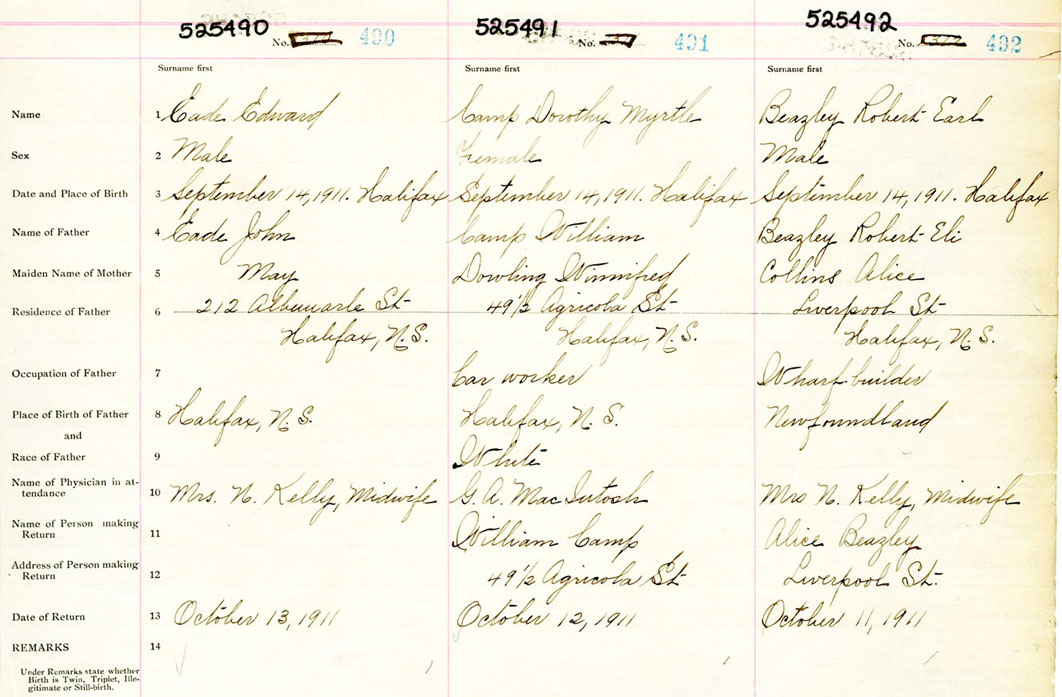 525490 No. 490 525491 No. 491 525492 No. 492
Surname first Surname first Surname first
Name 1 Eade Edward Camp Dorothy Myrtle Beazley Robert Earl
Sex 2 Male Female Male
Date and Place of Birth 3 September 14, 1911. Halifax September 14, 1911. Halifax September 14, 1911. Halifax
Name of Father 4 Eade John Camp William Beazley Robert Eli
Maiden Name of Mother 5 May Dowling Winnifred Collins Alice
Residence of Father 6 212 Albemarle St 49½ Agricola St Liverpool St
Halifax, N.S. Halifax, N.S. Halifax, N.S.
Occupation of Father 7 Car worker Wharf-builder
Place of Birth of Father 8 Halifax, N.S. Halifax, N.S. Newfoundland
and
Race of Father 9 White
Name of Physician in at-
tendance 10 Mrs. N. Kelly, Midwife G. A. MacIntosh Mrs N. Kelly, Midwife
Name of Person making
Return 11 William Camp Alice Beazley
Address of Person making
Return 12 49½ Agricola St. Liverpool St.
Date of Return 13 October 13, 1911 October 12, 1911 October 11, 1911
REMARKS 14
Under Remarks state whether
Birth is Twin, Triplet, Ille-
gitimate or Still-birth.